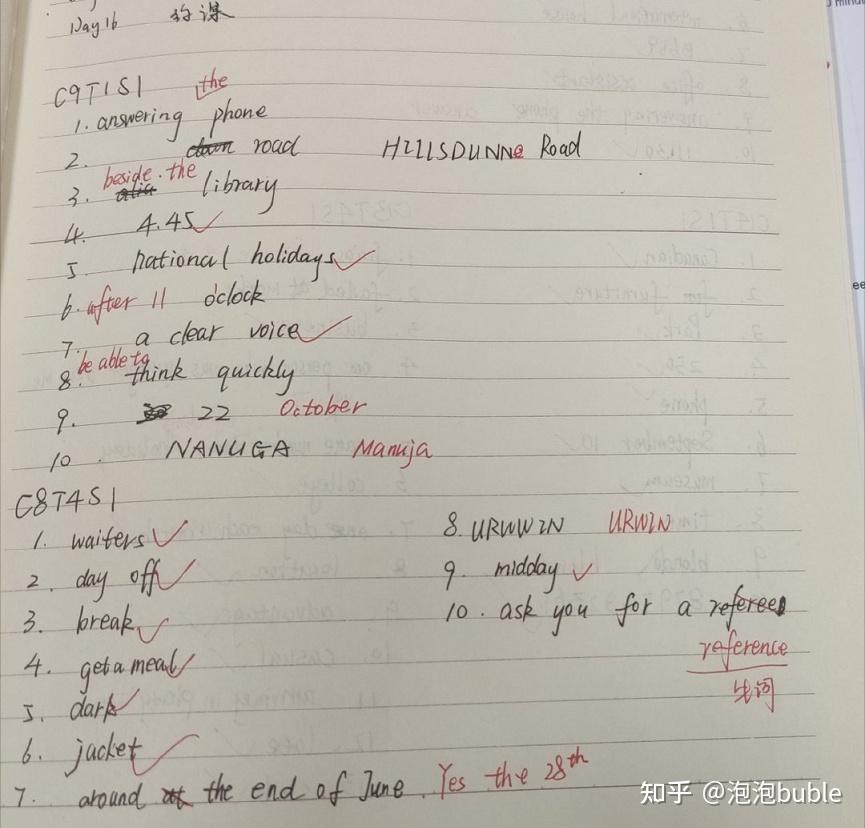 Day 16 补课
C9T1S1
1. answering the phone
2. road HILLSDUNNe Road
3. beside the library
4. 4.45 ✓
5. national holidays ✓
6. after 11 o'clock
7. a clear voice ✓
8. be able to think quickly
9. 22 October
10. NANUGA Manuja
C8T4S1
1. waiters ✓
2. day off ✓
3. break ✓
4. get a meal ✓
5. dark ✓
6. jacket ✓
7. around the end of June. Yes the 28th
8. URWWIN URWIN
9. midday ✓
10. ask you for a referee
reference
生词
知乎 @泡泡buble